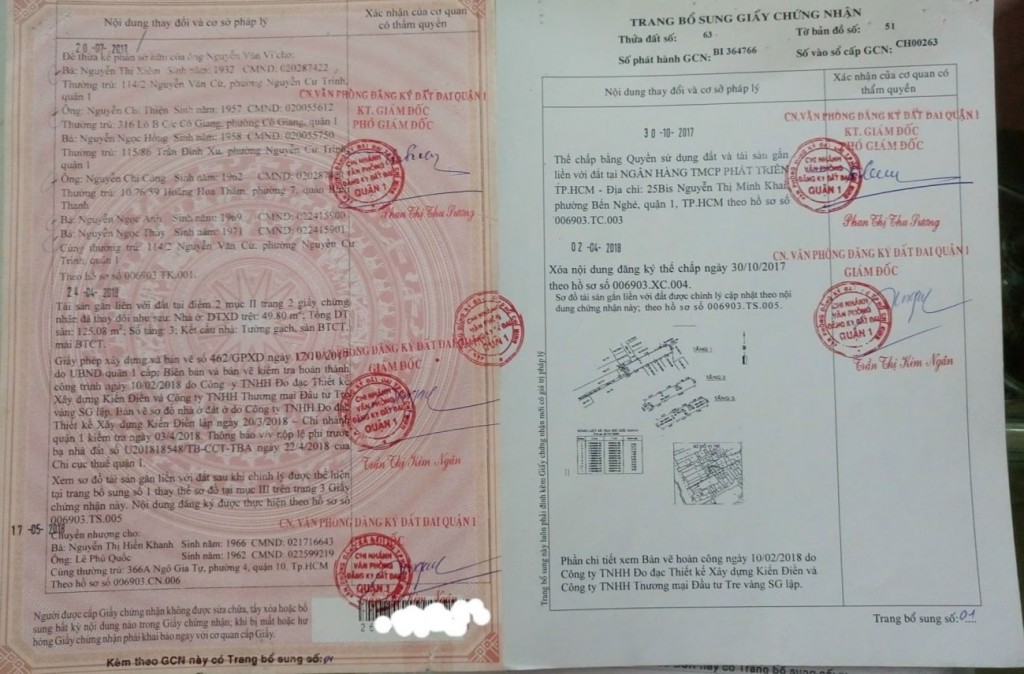 Nội dung thay đổi và cơ sở pháp lý
Xác nhận của cơ quan
có thẩm quyền
20-07-2011
Để thừa kế phần sở hữu của ông Nguyễn Văn Vi cho:
Bà: Nguyễn Thị Xiêm Sinh năm: 1932 CMND: 020287422
Thường trú: 114/2 Nguyễn Văn Cừ, phường Nguyễn Cư Trinh,
quận 1
Ông: Nguyễn Chí Thiện Sinh năm: 1957 CMND: 020055612
Thường trú: 316 Lô B C/c Cô Giang, phường Cô Giang, quận 1
Bà: Nguyễn Ngọc Hồng Sinh năm: 1958 CMND: 020055750
Thường trú: 115/86 Trần Đình Xu, phường Nguyễn Cư Trinh,
quận 1
Ông: Nguyễn Chí Công Sinh năm: 1962 CMND:
Thường trú: Hoàng Hoa Thám, phường 7, quận
Thạnh
Bà: Nguyễn Ngọc Anh Sinh năm: 1969 CMND: 022415900
Bà: Nguyễn Ngọc Thủy Sinh năm: 1971 CMND: 022415901
Cùng thường trú: 114/2 Nguyễn Văn Cừ, phường Nguyễn Cư
Trinh, quận 1
Theo hồ sơ số 006903.TK.001.
CN.VĂN PHÒNG ĐĂNG KÝ ĐẤT ĐAI QUẬN 1
KT. GIÁM ĐỐC
PHÓ GIÁM ĐỐC
CHI NHÁNH
VĂN PHÒNG
ĐĂNG KÝ ĐẤT ĐAI
QUẬN 1
Phan Thị Thu Sương
24-04-2018
Tài sản gắn liền với đất tại điểm 2 mục II trang 2 giấy chứng
nhận đã thay đổi như sau: Nhà ở: DTXD trệt: 49.80 m²; Tổng DT
sàn: 125.08 m²; Số tầng: 3; Kết cấu nhà: Tường gạch, sàn BTCT,
mái BTCT.
Giấy phép xây dựng và bản vẽ số 462/GPXD ngày 12/10/2017
do UBND quận 1 cấp; Biên bản và bản vẽ kiểm tra hoàn thành
công trình ngày 10/02/2018 do Công ty TNHH Đo đạc Thiết kế
Xây dựng Kiến Điền và Công ty TNHH Thương mại Đầu tư Tre
vàng SG lập. Bản vẽ sơ đồ nhà ở đất ở do Công ty TNHH Đo đạc
Thiết kế Xây dựng Kiến Điền lập ngày 20/3/2018 – Chi nhánh
quận 1 kiểm tra ngày 03/4/2018. Thông báo v/v nộp lệ phí trước
bạ nhà đất số U201818548/TB-CCT-TBA ngày 22/4/2018 của
Chi cục thuế quận 1.
Xem sơ đồ tài sản gắn liền với đất sau khi chỉnh lý được thể hiện
tại trang bổ sung số 1 thay thế sơ đồ tại mục III trên trang 3 Giấy
chứng nhận này. Nội dung đăng ký được thực hiện theo hồ sơ số
006903.TS.005
CN.VĂN PHÒNG ĐĂNG KÝ ĐẤT ĐAI QUẬN 1
GIÁM ĐỐC
CHI NHÁNH
VĂN PHÒNG
ĐĂNG KÝ ĐẤT ĐAI
QUẬN 1
Trần Thị Kim Ngân
17-05-2018
Chuyển nhượng cho:
Bà: Nguyễn Thị Hiền Khanh Sinh năm: 1966 CMND: 021716643
Ông: Lê Phú Quốc Sinh năm: 1962 CMND: 022599219
Cùng thường trú: 366A Ngô Gia Tự, phường 4, quận 10, Tp.HCM
Theo hồ sơ số 006903.CN.006
CN. VĂN PHÒNG ĐĂNG KÝ ĐẤT ĐAI QUẬN 1
CHI NHÁNH
VĂN PHÒNG
ĐĂNG KÝ ĐẤT ĐAI
QUẬN 1
Người được cấp Giấy chứng nhận không được sửa chữa, tẩy xóa hoặc bổ
sung bất kỳ nội dung nào trong Giấy chứng nhận; khi bị mất hoặc hư
hỏng Giấy chứng nhận phải khai báo ngay với cơ quan cấp Giấy.
Kèm theo GCN này có Trang bổ sung số: 01
TRANG BỔ SUNG GIẤY CHỨNG NHẬN
Thửa đất số: 63 Tờ bản đồ số: 51
Số phát hành GCN: BI 364766 Số vào sổ cấp GCN: CH00263
Nội dung thay đổi và cơ sở pháp lý
Xác nhận của cơ quan có
thẩm quyền
30-10-2017
Thế chấp bằng Quyền sử dụng đất và tài sản gắn
liền với đất tại NGÂN HÀNG TMCP PHÁT TRIỂN
TP.HCM - Địa chỉ: 25Bis Nguyễn Thị Minh Khai,
phường Bến Nghé, quận 1, TP.HCM theo hồ sơ số
006903.TC.003
CN.VĂN PHÒNG ĐĂNG KÝ ĐẤT ĐAI QUẬN 1
KT. GIÁM ĐỐC
PHÓ GIÁM ĐỐC
CHI NHÁNH
VĂN PHÒNG
ĐĂNG KÝ ĐẤT ĐAI
QUẬN 1
Phan Thị Thu Sương
02-04-2018
Xóa nội dung đăng ký thế chấp ngày 30/10/2017
theo hồ sơ số 006903.XC.004.
Sơ đồ tài sản gắn liền với đất được chỉnh lý cập nhật theo nội
dung chứng nhận này; theo hồ sơ số 006903.TS.005.
CN. VĂN PHÒNG ĐĂNG KÝ ĐẤT ĐAI QUẬN 1
GIÁM ĐỐC
CHI NHÁNH
VĂN PHÒNG
ĐĂNG KÝ ĐẤT ĐAI
QUẬN 1
Trần Thị Kim Ngân
TẦNG 1
TẦNG 2
TẦNG 3
Trang bổ sung này luôn phải đính kèm Giấy chứng nhận mới có giá trị pháp lý
Phần chi tiết xem Bản vẽ hoàn công ngày 10/02/2018 do
Công ty TNHH Đo đạc Thiết kế Xây dựng Kiến Điền và
Công ty TNHH Thương mại Đầu tư Tre vàng SG lập.
Trang bổ sung số: 01